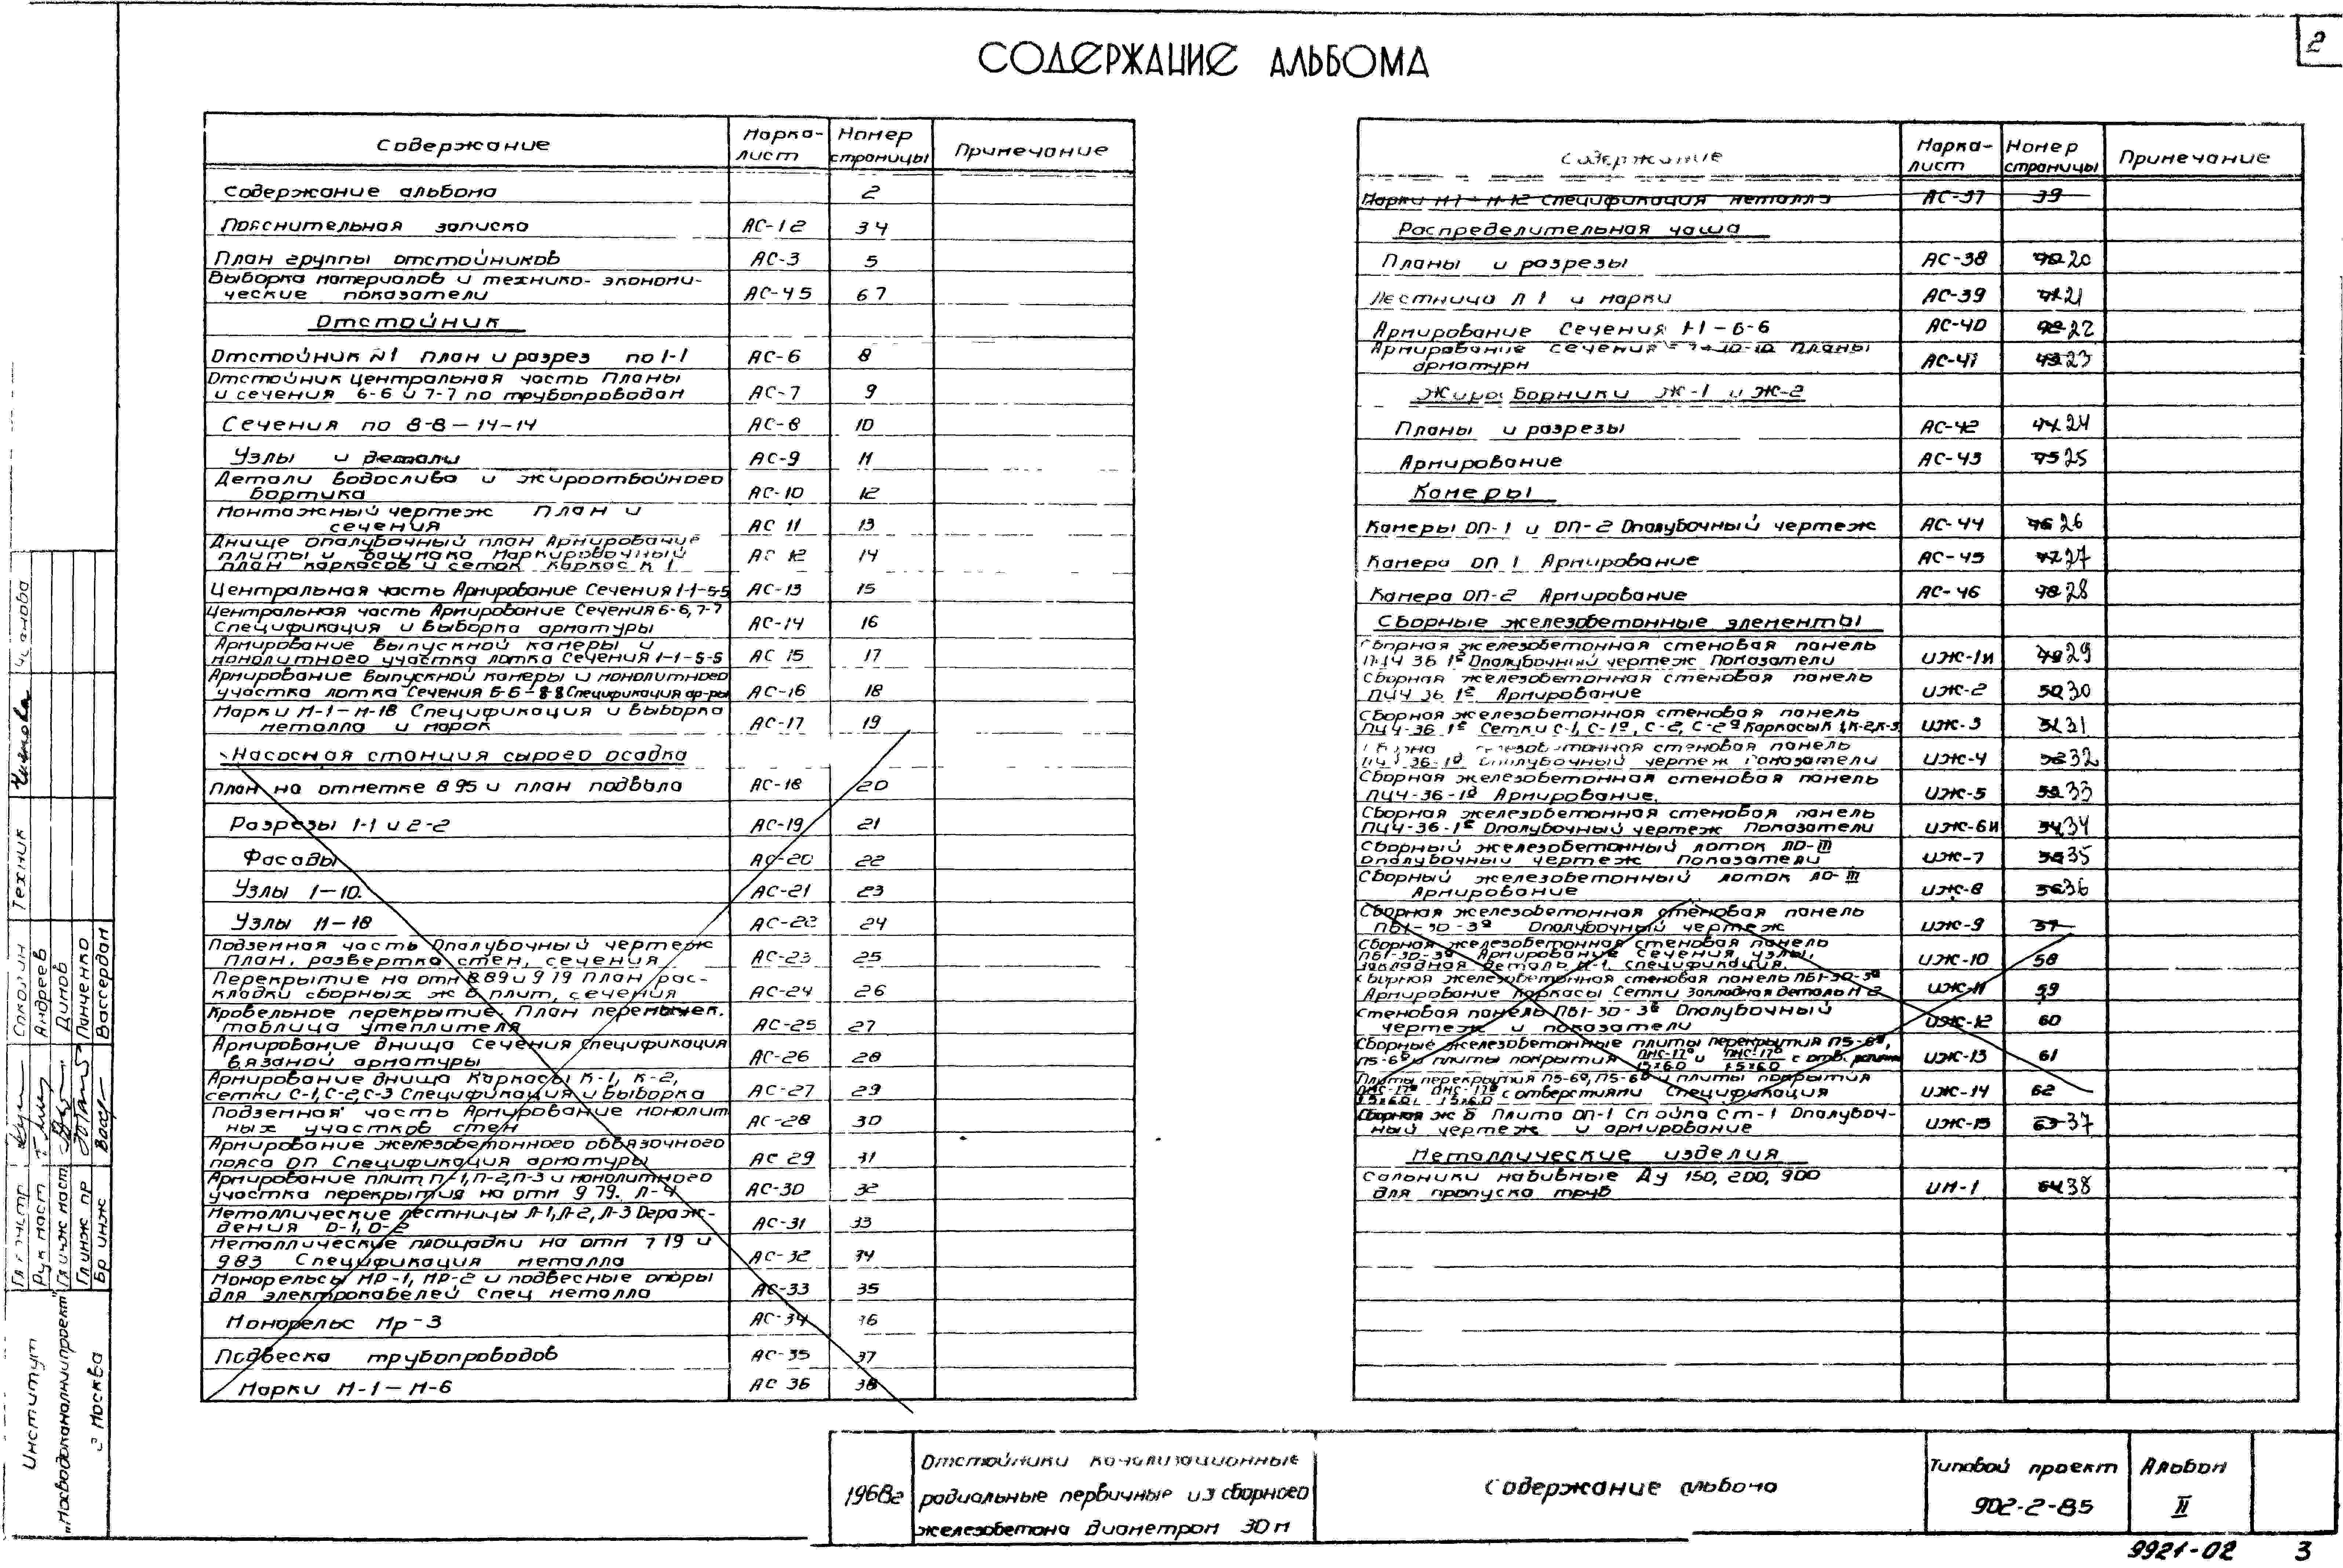 2
СОДЕРЖАНИЕ АЛЬБОМА
Содержание Марка-лист Номер страницы Примечание
Содержание альбома 2
Пояснительная записка АС-1 2 3 4
План группы отстойников АС-3 5
Выборка материалов и технико-экономи-
ческие показатели АС-4 5 6 7
Отстойник
Отстойник N1 План и разрез по 1-1 АС-6 8
Отстойник Центральная часть Планы
и сечения 6-6 и 7-7 по трубопроводам АС-7 9
Сечения по 8-8 — 14-14 АС-8 10
Узлы и детали АС-9 11
Детали водослива и жироотбойного
бортика АС-10 12
Монтажный чертеж План и
сечения АС 11 13
Днище Опалубочный план Армирование
плиты и башмака Маркировочный
план каркасов и сеток Каркас К 1 АС 12 14
Центральная часть Армирование Сечения 1-1-5-5 АС-13 15
Центральная часть Армирование Сечения 6-6, 7-7
Спецификация и выборка арматуры АС-14 16
Армирование выпускной камеры и
монолитного участка лотка Сечения 1-1-5-5 АС 15 17
Армирование выпускной камеры и монолитного
участка лотка Сечения 6-6-8-8 Спецификация ар-ры АС-16 18
Марки М-1-М-18 Спецификация и выборка
металла и марок АС-17 19
Насосная станция сырого осадка
План на отметке 8 95 и план подвала АС-18 20
Разрезы 1-1 и 2-2 АС-19 21
Фасады АС-20 22
Узлы 1-10. АС-21 23
Узлы 11-18 АС-22 24
Подземная часть Опалубочный чертеж
План, развертка стен, сечения АС-23 25
Перекрытие на отм 8 89 и 9 79 План рас-
кладки сборных ж б плит, сечения АС-24 26
Кровельное перекрытие План перемычек.
таблица утеплителя АС-25 27
Армирование днища Сечения Спецификация
вязаной арматуры АС-26 28
Армирование днища Каркасы К-1, К-2,
сетки С-1, С-2, С-3 Спецификация и выборка АС-27 29
Подземная часть Армирование монолит
ных участков стен АС-28 30
Армирование железобетонного обвязочного
пояса ОП Спецификация арматуры АС 29 31
Армирование плит П-1, П-2, П-3 и монолитного
участка перекрытия на отм 9 79. Л-4 АС-30 32
Металлические лестницы Л-1, Л-2, Л-3 Ограж-
дения О-1, О-2 АС-31 33
Металлические площадки на отм 7 19 и
9 83 Спецификация металла АС-32 34
Монорельсы МР-1, МР-2 и подвесные опоры
для электрокабелей Спец металла АС-33 35
Монорельс Мр-3 АС-34 36
Подвеска трубопроводов АС-35 37
Марки М-1-М-6 АС 36 38
Содержание Марка-лист Номер страницы Примечание
Марки М 1 - М-12 Спецификация металла АС-37 39
Распределительная чаша
Планы и разрезы АС-38 40 20
Лестница Л 1 и марки АС-39 41 21
Армирование Сечения 1-1-6-6 АС-40 42 22
Армирование сечения 7-7-10-10 Планы
арматуры АС-41 43 23
Жиросборники Ж-1 и Ж-2
Планы и разрезы АС-42 44 24
Армирование АС-43 45 25
Камеры
Камеры ОП-1 и ОП-2 Опалубочный чертеж АС-44 46 26
Камера ОП 1 Армирование АС-45 47 27
Камера ОП-2 Армирование АС-46 48 28
Сборные железобетонные элементы
Сборная железобетонная стеновая панель
ПЦ4 36 1г Опалубочный чертеж Показатели ИЖ-1и 49 29
Сборная железобетонная стеновая панель
ПЦ4 36 1г Армирование ИЖ-2 50 30
Сборная железобетонная стеновая панель
ПЦ4-36 1г Сетки С-1, С-1а, С-2, С-2а Каркасы К 1, К-2, К-3 ИЖ-3 51 31
Сборная железобетонная стеновая панель
ПЦ4 36-1д Опалубочный чертеж Показатели ИЖ-4 52 32
Сборная железобетонная стеновая панель
ПЦ4-36-1д Армирование. ИЖ-5 53 33
Сборная железобетонная стеновая панель
ПЦ4-36-1е Опалубочный чертеж Показатели ИЖ-6и 54 34
Сборный железобетонный лоток ЛО-III
Опалубочный чертеж Показатели ИЖ-7 55 35
Сборный железобетонный лоток ЛО-III
Армирование ИЖ-8 56 36
Сборная железобетонная стеновая панель
ПБ1-30-3а Опалубочный чертеж ИЖ-9 57
Сборная железобетонная стеновая панель
ПБ1-30-3а Армирование Сечения узлы,
закладная деталь М-1, спецификация. ИЖ-10 58
Сборная железобетонная стеновая панель ПБ1-30-3а
Армирование Каркасы Сетки Закладная деталь М 2 ИЖ-11 59
Стеновая панель ПБ1-30-3б Опалубочный
чертеж и показатели ИЖ-12 60
Сборные железобетонные плиты перекрытия П5-6а,
П5-6б и плиты покрытия ПНС-17а/1 5х6 0 и ПНС-17б/1 5х6 0 с отв. ИЖ-13 61
Плиты перекрытия П5-6а, П5-6б и плиты покрытия
ПНС-17а/1 5х6 0, ПНС-17б/1 5х6 0 с отверстиями Спецификация ИЖ-14 62
Сборная ж б Плита ОП-1 Стойка Ст-1 Опалубоч-
ный чертеж и армирование ИЖ-15 63 37
Металлические изделия
Сальники набивные Ду 150, 200, 900
для пропуска труб ИМ-1 64 38
1968г
Отстойники канализационные
радиальные первичные из сборного
железобетона диаметром 30 м
Содержание альбома
Типовой проект
902-2-85
Альбом
II
9921-02 3
Институт
"Мосводоканалниипроект"
г Москва
Рук маст Андреев
Гл инж маст Димов
Гл инж пр Панченко
Бр инж Вассердан
Техник